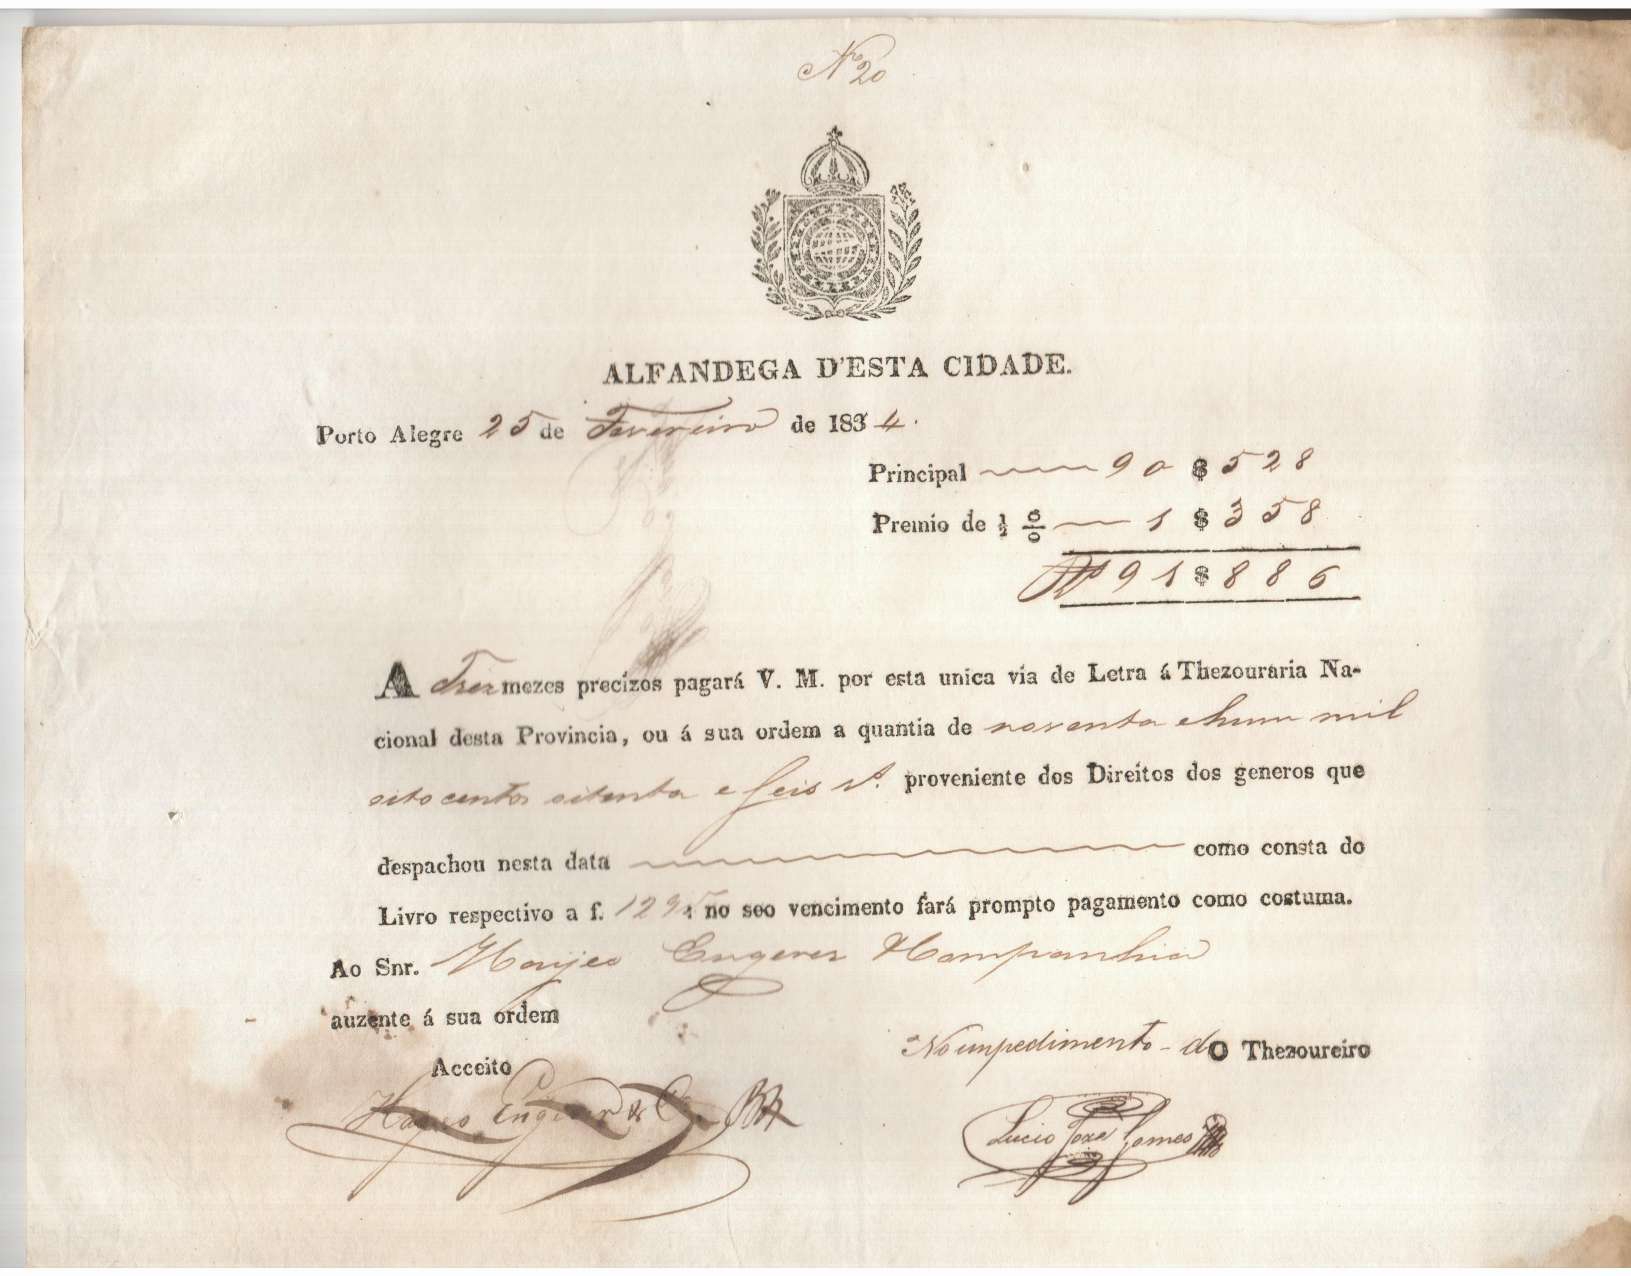 Nº 20
ALFANDEGA D'ESTA CIDADE.
Porto Alegre 25 de Fevereiro de 1834.
Principal 90 $ 528
Premio de ½ % 1 $ 358
Rs 91 $ 886
A Tres mezes precizos pagará V. M. por esta unica via de Letra á Thezouraria Na-
cional desta Provincia, ou á sua ordem a quantia de noventa e hum mil
oito centos oitenta e seis rs. proveniente dos Direitos dos generos que
despachou nesta data como consta do
Livro respectivo a f. no seo vencimento fará prompto pagamento como costuma.
Ao Snr. Engerer Companhia
auzente á sua ordem
No impedimento do O Thezoureiro
Acceito
Engerer & Ca.
Lucio Joze Gomes